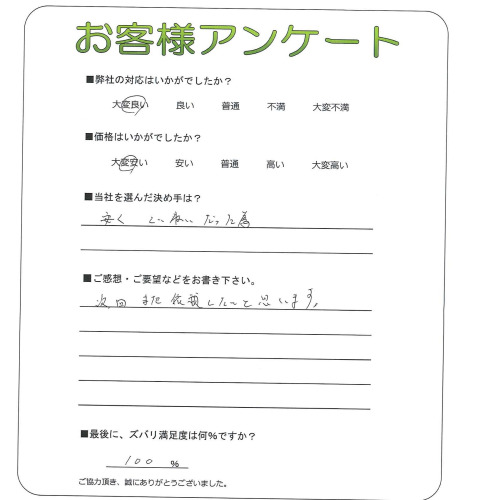 お客様アンケート
■弊社の対応はいかがでしたか？
大変良い 良い 普通 不満 大変不満
■価格はいかがでしたか？
大変安い 安い 普通 高い 大変高い
■当社を選んだ決め手は？
安く ていねい だった為
■ご感想・ご要望などをお書き下さい。
次回 また 依頼したいと思います。
■最後に、ズバリ満足度は何％ですか？
100 ％
ご協力頂き、誠にありがとうございました。